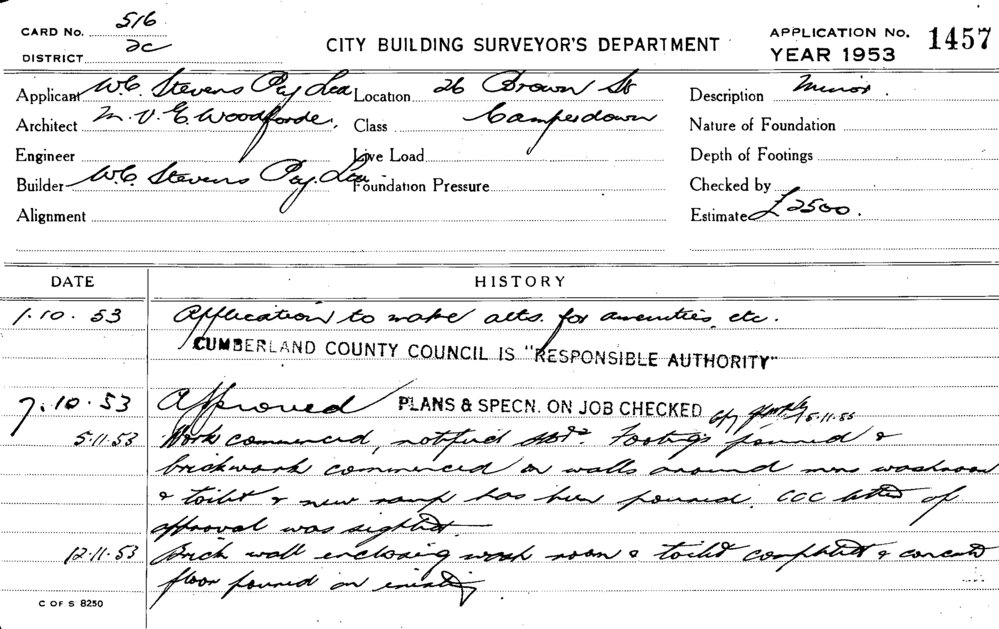 CARD No. 516
DISTRICT 2c
CITY BUILDING SURVEYOR'S DEPARTMENT
APPLICATION No. 1457
YEAR 1953
Applicant W.C. Stevens Pty Ltd Location 26 Brown St Description Minor.
Architect M.V.E. Woodforde, Class Camperdown Nature of Foundation
Engineer Live Load Depth of Footings
Builder W.C. Stevens Pty. Ltd. Foundation Pressure Checked by
Alignment Estimate £2500.
DATE HISTORY
1.10.53 Application to make alts. for amenities etc.
CUMBERLAND COUNTY COUNCIL IS "RESPONSIBLE AUTHORITY"
7.10.53 Approved PLANS & SPECN. ON JOB CHECKED
5.11.53 Work commenced, notified Footings poured &
brickwork commenced on walls around mens washroom
& toilet & new ramp has been poured. CCC letter of
approval was sighted.
12.11.53 Brick wall enclosing wash room & toilet completed & concrete
floor poured on existing
C OF S 8250